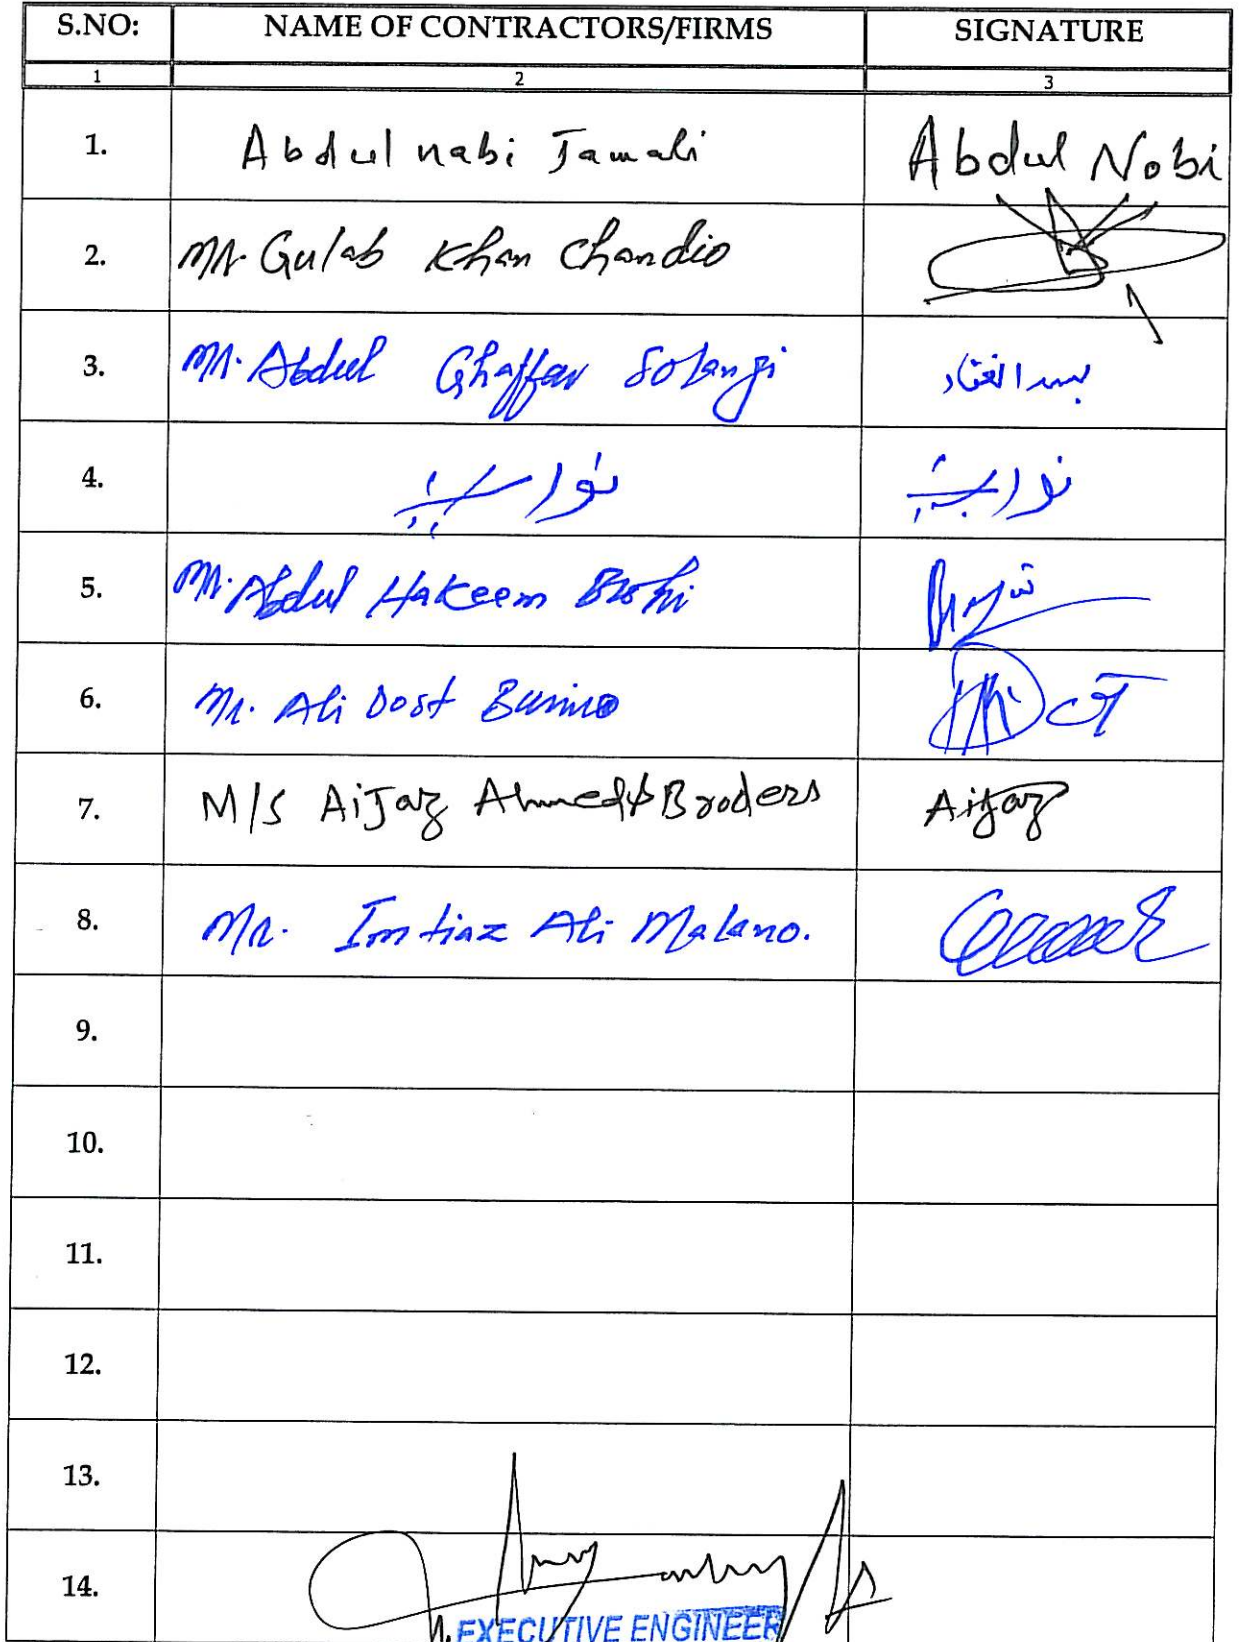 S.NO: NAME OF CONTRACTORS/FIRMS SIGNATURE
1 2 3
1. Abdul nabi Jamali Abdul Nobi
2. Mr. Gulab Khan Chandio
3. Mr. Abdul Ghaffar Solangi
4. نواب نواب
5. Mr. Abdul Hakeem Brohi
6. Mr. Ali Dost Buriro
7. M/S AiJaz Ahmed & Broders Aijaz
8. Mr. Imtiaz Ali Malano.
9.
10.
11.
12.
13.
14.
EXECUTIVE ENGINEER